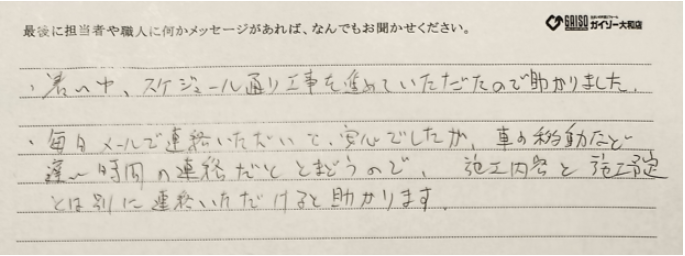 最後に担当者や職人に何かメッセージがあれば、なんでもお聞かせください。
GAISO ガイソー大和店
・暑い中、スケジュール通り工事を進めていただたので助かりました。
・毎日メールで連絡いただいて、安心でしたが、車の移動など
遅い時間の連絡だと とまどうので、 施工内容と施工予定
とは別に連絡いただけると助かります。